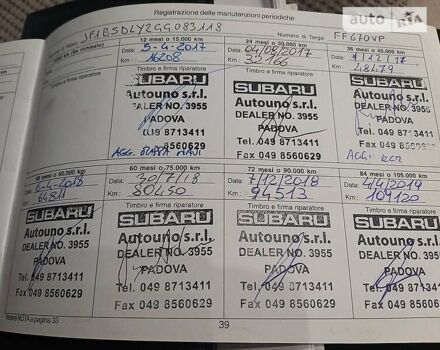 Registrazione delle manutenzioni periodiche
auto RIA
JF1BSDLY2GG083118
Numero di Targa: FF670VP
km (se richiesto)
12 mesi o 15.000 km
24 mesi o 30.000 km
36 mesi o 45.000 km
Data: 5-4-2017
Data: 04/08/2017
Data: 1/12/17
Km: 16208
Km: 32166
Km: 48479
Timbro e firma riparatore
Timbro e firma riparatore
Timbro e firma riparatore
SUBARU
SUBARU
SUBARU
Autouno s.r.l.
Autouno s.r.l.
Autouno s.r.l.
DEALER NO. 3955
DEALER NO. 3955
DEALER NO. 3955
PADOVA
PADOVA
PADOVA
049 8713411
Tel. 049 8713411
Tel. 049 8713411
8560629
Fax 049 8560629
Fax 049 8560629
AGG. MAPPA NAVI
AGG:
48 mesi o 60.000 km
60 mesi o 75.000 km
72 mesi o 90.000 km
84 mesi o 105.000 km
6-4-2018
Data: 30/7/18
Data: 7/12/2018
Data: 4/4/2019
64811
Km: 80450
Km: 94513
Km: 109120
Timbro e firma riparatore
Timbro e firma riparatore
Timbro e firma riparatore
Timbro e firma riparatore
SUBARU
SUBARU
SUBARU
SUBARU
Autouno s.r.l.
Autouno s.r.l.
Autouno s.r.l.
Autouno s.r.l.
DEALER NO. 3955
DEALER NO. 3955
DEALER NO. 3955
DEALER NO. 3955
PADOVA
PADOVA
PADOVA
PADOVA
Tel. 049 8713411
Tel. 049 8713411
Tel. 049 8713411
Tel. 049 8713411
Fax 049 8560629
Fax 049 8560629
Fax 049 8560629
Fax 049 8560629
Vedere NOTA a pagina 33
39